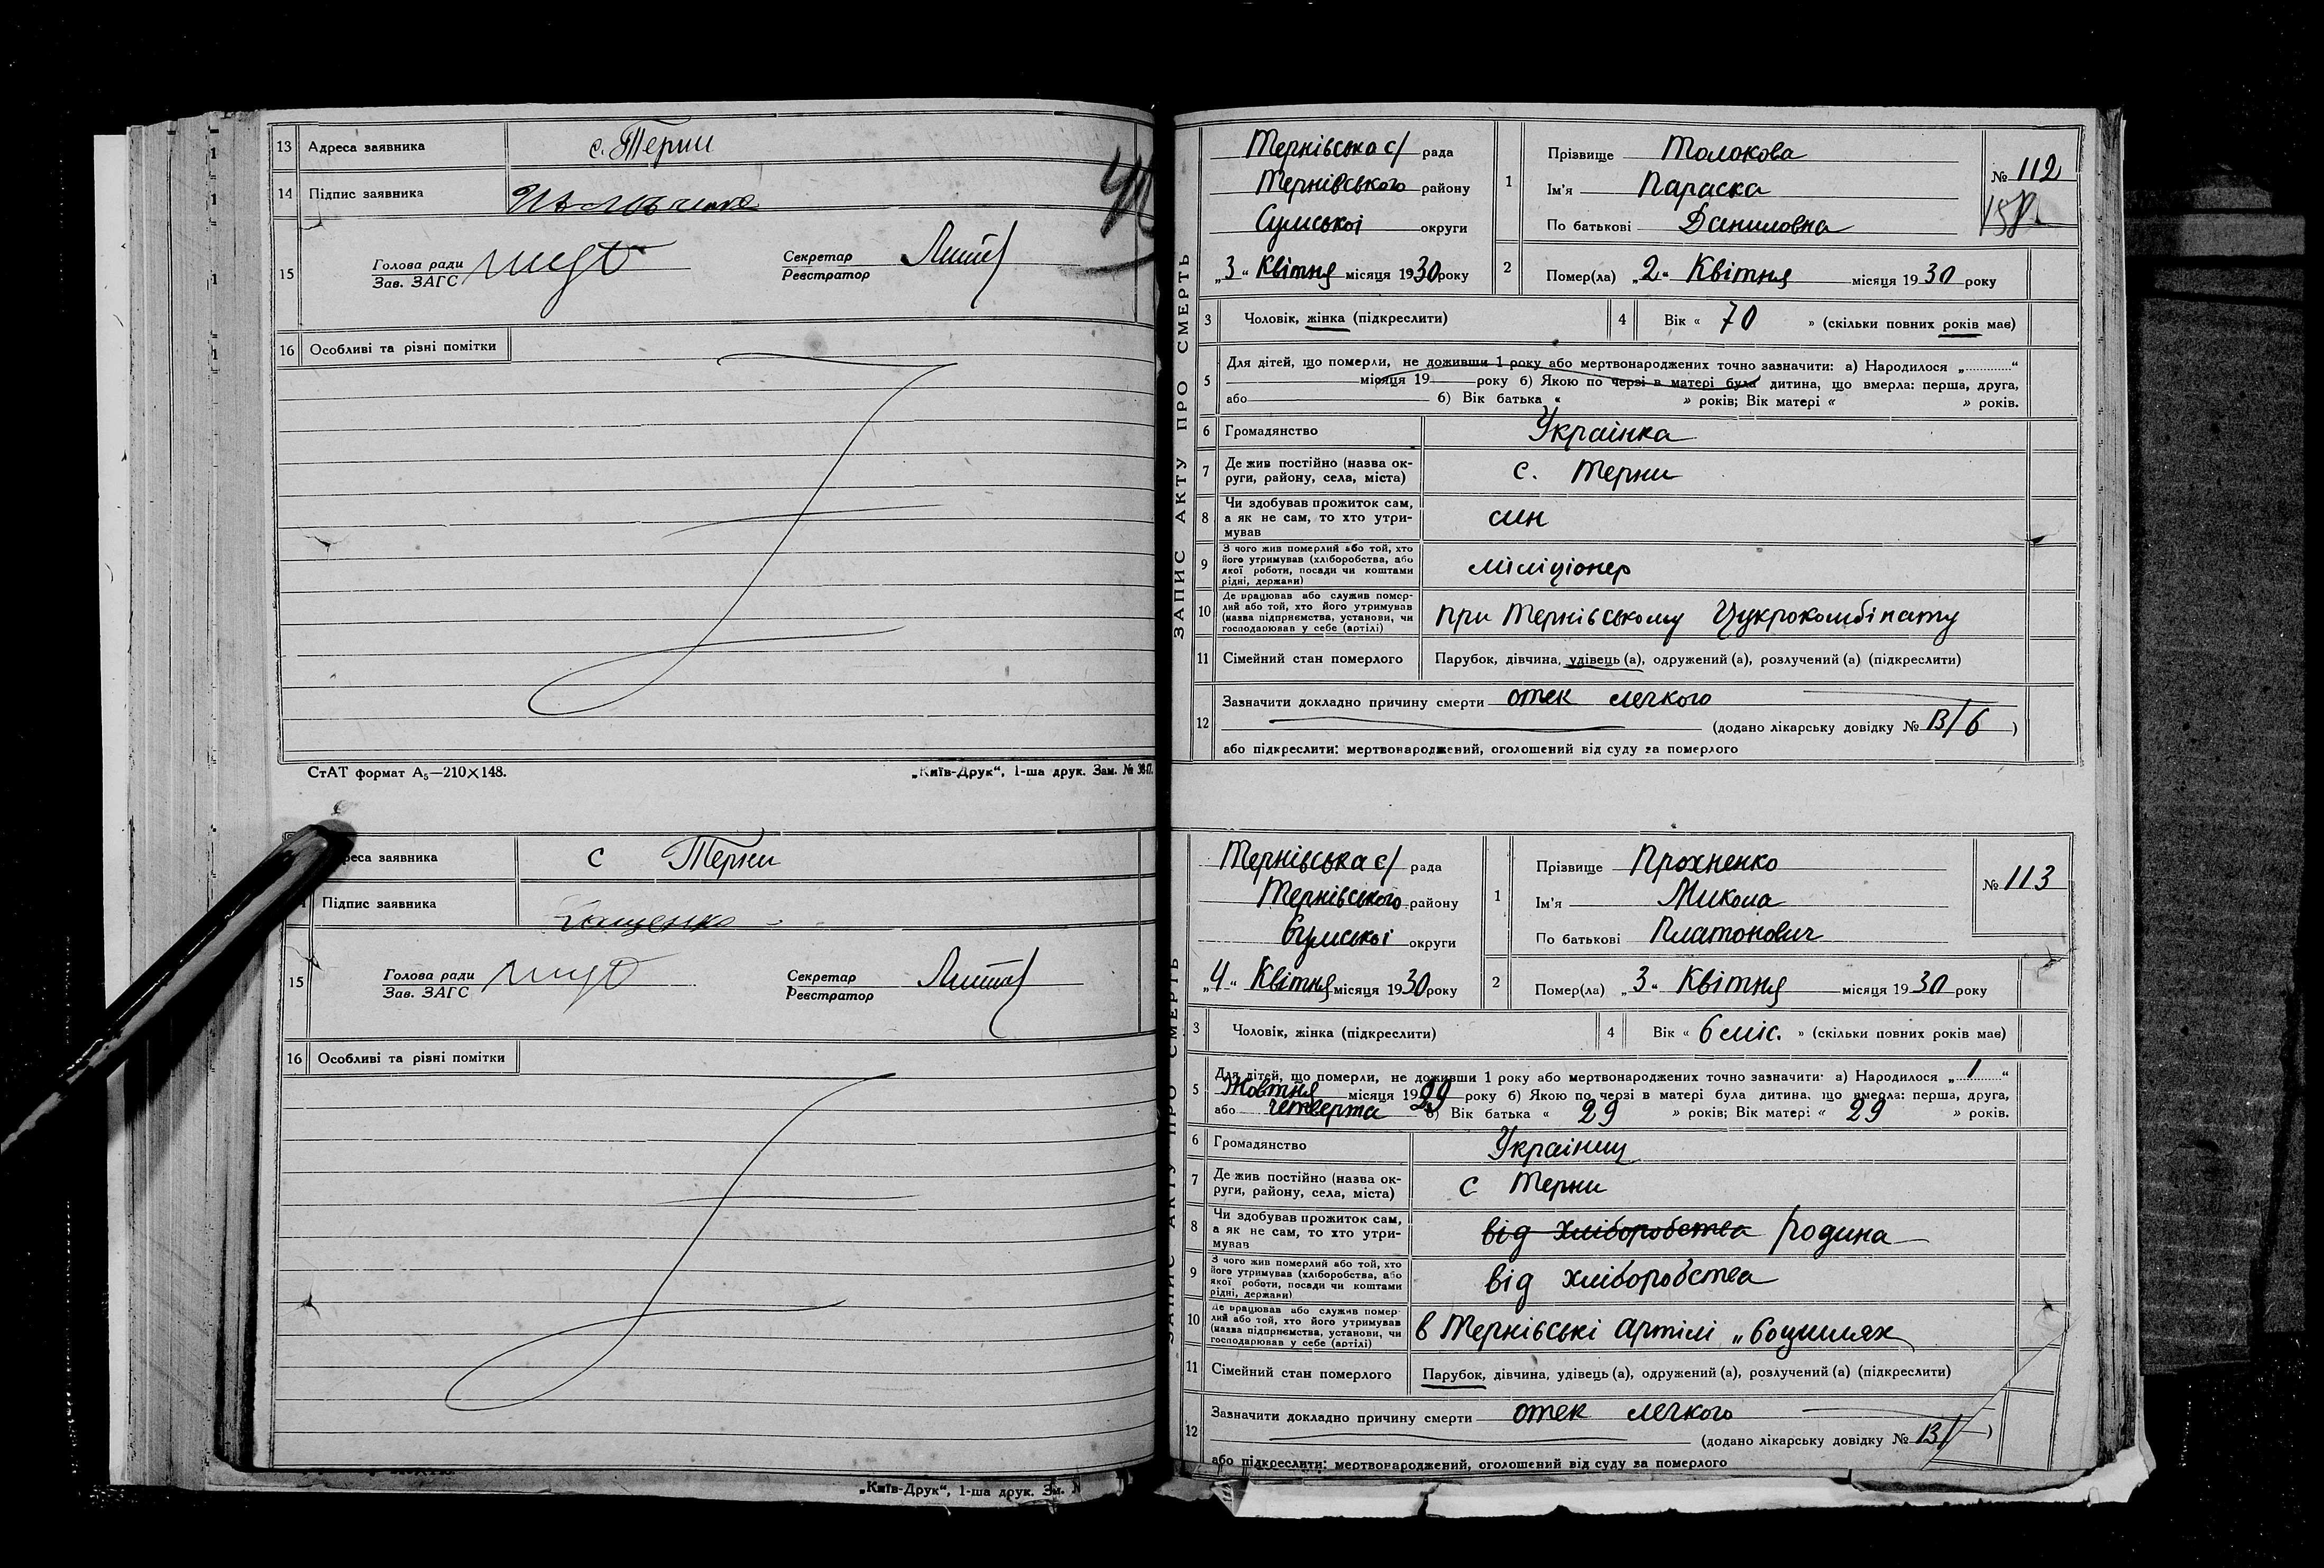 13 Адреса заявника с. Терни
14 Підпис заявника
15 Голова ради
Зав. ЗАГС
Секретар
Реєстратор
16 Особливі та різні помітки
СтАТ формат А₅—210×148. „Київ-Друк“, 1-ша друк. Зам. №
реса заявника с Терни
Підпис заявника
15 Голова ради
Зав. ЗАГС
Секретар
Реєстратор
16 Особливі та різні помітки
„Київ-Друк“, 1-ша друк.
ЗАПИС АКТУ ПРО СМЕРТЬ
Тернівська с/ рада
Тернівського району
Сумської округи
„3“ Квітня місяця 1930 року
1 Прізвище Толокова
Ім'я Параска
По батькові Даниловна
№ 112
2 Помер(ла) „2“ Квітня місяця 1930 року
3 Чоловік, жінка (підкреслити)
4 Вік « 70 » (скільки повних років має)
5 Для дітей, що померли, не доживши 1 року або мертвонароджених точно зазначити: а) Народилося „............“
місяця 19 року б) Якою по черзі в матері була дитина, що вмерла: перша, друга,
або б) Вік батька « » років; Вік матері « » років.
6 Громадянство Українка
7 Де жив постійно (назва округи, району, села, міста) с. Терни
8 Чи здобував прожиток сам, а як не сам, то хто утримував син
9 З чого жив померлий або той, хто його утримував (хліборобства, або якої роботи, посади чи коштами рідні, держави) міліціонер
10 Де працював або служив померлий або той, хто його утримував (назва підприємства, установи, чи господарював у себе (артілі) при Тернівському Цукрокомбінату
11 Сімейний стан померлого Парубок, дівчина, удівець (а), одружений (а), розлучений (а) (підкреслити)
12 Зазначити докладно причину смерти отек легкого
(додано лікарську довідку № В/6 )
або підкреслити: мертвонароджений, оголошений від суду за померлого
ЗАПИС АКТУ ПРО СМЕРТЬ
Тернівська с/ рада
Тернівського району
Сумської округи
„4“ Квітня місяця 1930 року
1 Прізвище Прохненко
Ім'я Микола
По батькові Платонович
№ 113
2 Помер(ла) „3“ Квітня місяця 1930 року
3 Чоловік, жінка (підкреслити)
4 Вік « 6 міс. » (скільки повних років має)
5 Для дітей, що померли, не доживши 1 року або мертвонароджених точно зазначити: а) Народилося „ 1 “
Жовтня місяця 1929 року б) Якою по черзі в матері була дитина, що вмерла: перша, друга,
або четверта б) Вік батька « 29 » років; Вік матері « 29 » років.
6 Громадянство Українец
7 Де жив постійно (назва округи, району, села, міста) с Терни
8 Чи здобував прожиток сам, а як не сам, то хто утримував від хліборобства родина
9 З чого жив померлий або той, хто його утримував (хліборобства, або якої роботи, посади чи коштами рідні, держави) від хліборобства
10 Де працював або служив померлий або той, хто його утримував (назва підприємства, установи, чи господарював у себе (артілі) в Тернівські артілі
11 Сімейний стан померлого Парубок, дівчина, удівець (а), одружений (а), розлучений (а) (підкреслити)
12 Зазначити докладно причину смерти отек легкого
(додано лікарську довідку № В/ )
або підкреслити: мертвонароджений, оголошений від суду за померлого